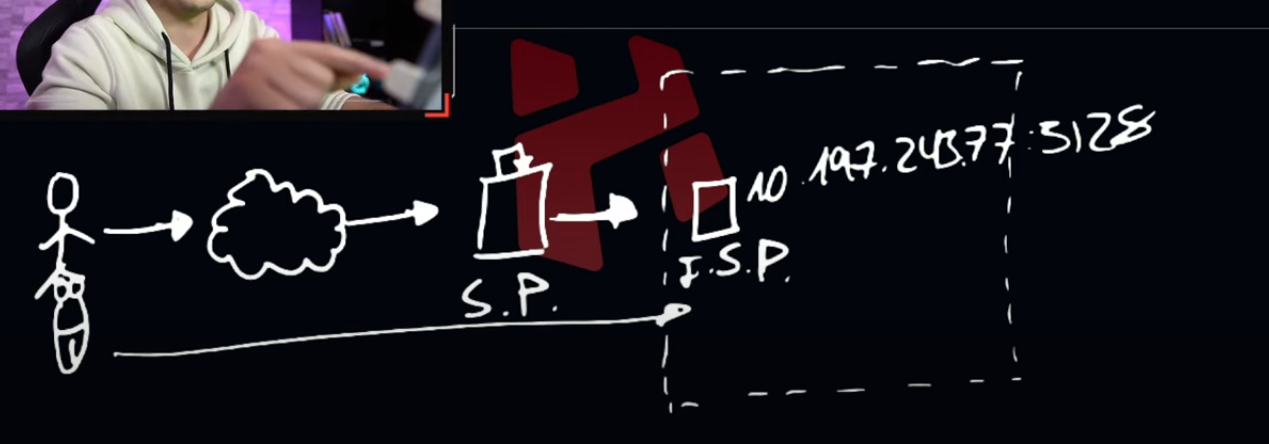 10.197.243.77:3128
S.P.
I.S.P.